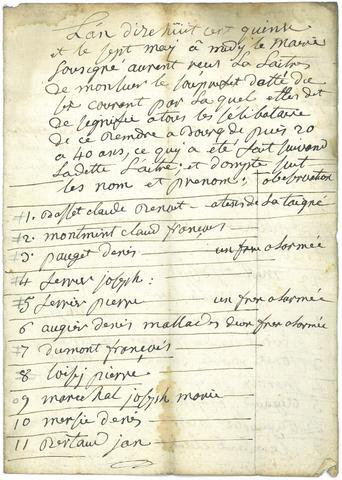 L'an dixe huit cent quinse
et le sept may à midy le maire
sousigné aurent reçu La Laitre
de monsieur le souprefet datté du
courent par La quel elles dit
de segnifié a tous les selibataire
de ce rendre a bourg de puis 20
a 40 ans, ce quy a été fait suivand
Ladette Laitre; et donpte suit
les nom et prenom; observation
#1. claude Benoit - ateins de La taigne
#2. montment claud françois
#3. pauget denis un frere a larmée
#4 ferrier joseph:
#5 ferrier pierre un frer a larmée
6 augier denis mallades deux frer a larmée
#7 dumont françois
8 loisy pierre
#9 marechal joseph marie
10 mersie denis
11 Bertaud jan